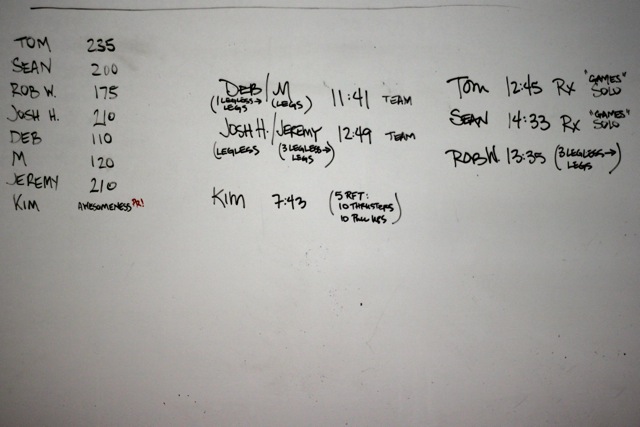 TOM 235
SEAN 200
ROB W. 175
JOSH H. 210
DEB 110
M 120
JEREMY 210
KIM AWESOMENESS PR!
DEB / M 11:41 TEAM
(1 LEGLESS→ LEGS) (LEGS)
JOSH H. / JEREMY 12:49 TEAM
(LEGLESS (3 LEGLESS→ LEGS)
KIM 7:43 (5 RFT:
10 THRUSTERS
10 PULL UPS)
TOM 12:45 RX "GAMES" SOLO
SEAN 14:33 RX "GAMES" SOLO
ROB W. 13:35 (3 LEGLESS→ LEGS)